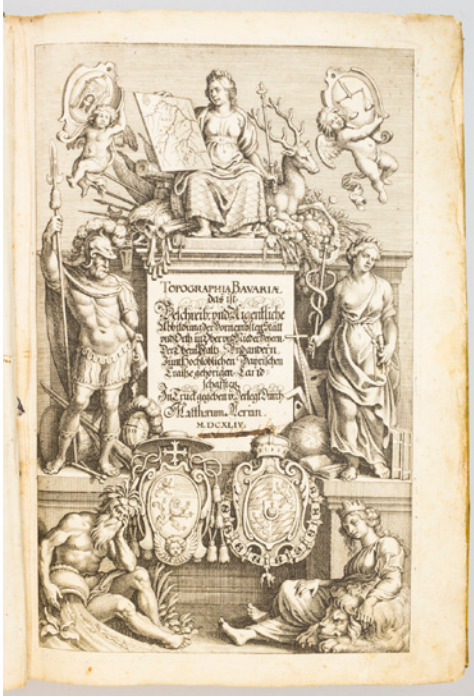 TOPOGRAPHIA BAVARIÆ
das ist
Beschreib: vnd Aigentliche
Abbildung der Vornembsten Stätt
vnd Orth in Ober vnd Nieder Beyern
Der Obern Pfaltz Vnd andern
Zum Hochlöblichen Bayrischen
Craiße gehörigen Land
schafften
In Truck gegeben v: Verlegt Durch
Matthæum Merian.
M.DCXLIV.